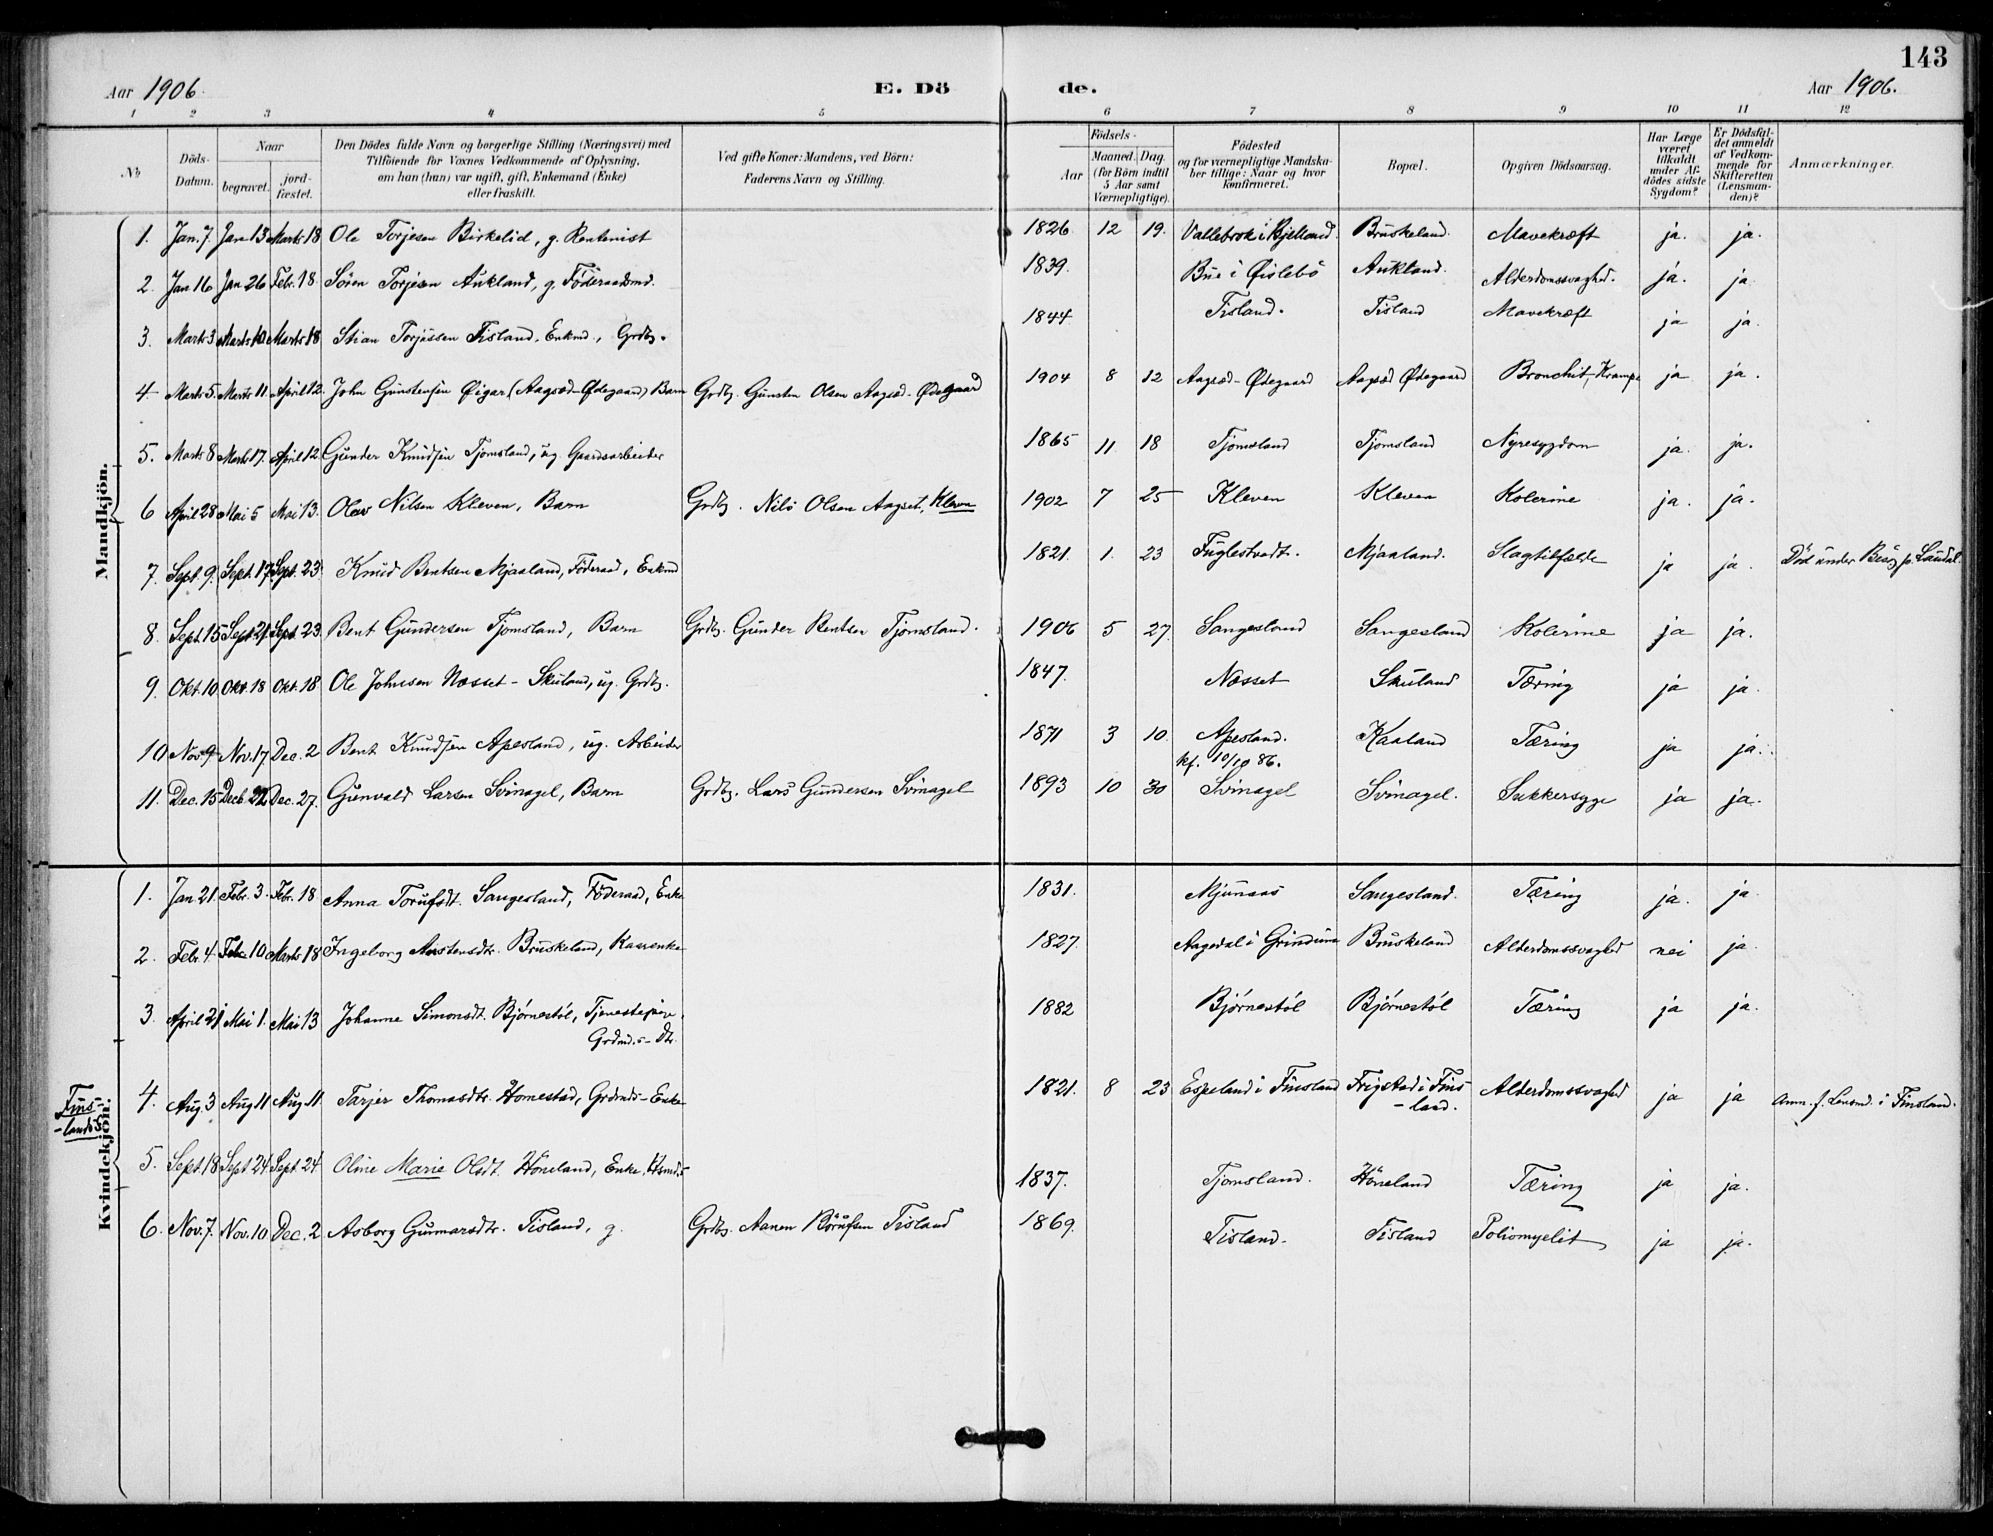 143
Aar 1906. E. Dö de. Aar 1906.
1 2 3 4 5 6 7 8 9 10 11 12
No
Döds-Datum.
Naar
begravet.
jord-fæstet.
Den Dödes fulde Navn og borgerlige Stilling (Næringsvei) med
Tilföiende for Voxnes Vedkommende af Oplysning,
om han (hun) var ugift, gift, Enkemand (Enke)
eller fraskilt.
Ved gifte Koner: Mandens, ved Börn:
Faderens Navn og Stilling.
Födsels-
Aar
Maaned. Dag.
(for Börn indtil
5 Aar samt
Værnepligtige).
Födested
og for værnepligtige Mandska-
ber tillige: Naar og hvor
konfirmeret.
Bopæl.
Opgiven Dödsaarsag.
Har Læge
været
tilkaldt
under Af-
dödes sidste
Sygdom?
Er Dödsfal-
det anmeldt
af Vedkom-
mende for
Skifteretten
(Lensman-
den)?
Anmærkninger.
Mandkjön.
1. Jan. 7 Jan 13 Marts 18 Ole Torjesen Birkelid, g. Rentenist 1826 12 19. Vallebrok i Bjelland. Bruskeland. Mavekræft ja. ja.
2. Jan 16 Jan 26 Febr. 18 Sören Torjesen Aukland, g. Föderaadsmd. 1839. Bue i Øislebö Aukland. Alderdomssvaghed. ja. ja
3. Marts 3 Marts 10 Marts 18 Stian Torjussen Tisland, Enkmd., Grdbr. 1844 Tisland. Tisland Mavekræft ja ja.
4 Marts 5. Marts 11. April 12. John Gunstensen Øigar (Aagsæd-Ødegaard) Barn Grdbr. Gunsten Olsen Aagsæd-Ødegaard 1904 8 12 Aagsæd-Ødegaard Aagsæd Ødegaard Bronchit, Krampe ja ja.
5. Marts 8 Marts 17. April 12 Gunder Knudsen Tjomsland, ug. Gaardsarbeider 1865 11 18 Tjomsland Tjomsland Nyresygdom ja. ja.
6 April 28 Mai 5 Mai 13. Olav Nilsen Kleven, Barn Grdbr. Nils Olsen Aagset, Kleven 1902 7 25 Kleven Kleven Kolerine ja. ja.
7. Sept. 9. Sept. 17. Sept. 23. Knud Bentsen Mjaaland, Föderaad, Enkmd 1821. 1. 23 Fuglestvedt. Mjaaland. Slagtilfælde ja ja. Död under Besög p. Laudal.
8. Sept. 15 Sept 21. Sept. 23. Bent Gundersen Tjomsland, Barn Grdbr. Gunder Bentsen Tjomsland. 1906 5 27. Sangesland Sangesland Kolerine ja ja.
9. Okt. 10 Okt. 18 Okt. 18 Ole Johnsen Næsset-Skuland, ug. Grdbr. 1847. Næsset Skuland Tæring ja ja.
10 Nov. 9 Nov. 17. Dec. 2 Bent Knudsen Apesland, ug. Arbeider 1871 3 10. Apesland. Kaaland Tæring ja ja.
kf. 10/10 86.
11. Dec. 15 Decb. 22 Dec. 27. Gunvald Larsen Svinagel, Barn Grdbr. Lars Gundersen Svinagel 1893 10 30 Svinagel Svinagel. Sukkersyge ja ja.
Kvindekjön.
1. Jan. 21. Febr. 3. Febr. 18 Anna Torufsdt. Sangesland, Föderaad, Enke 1831. Mjunaas Sangesland. Tæring ja. ja.
2. Febr. 4. Febr. 10 Marts 18 Ingeborg Austensdtr. Bruskeland, Kaarenke 1827. Aagedal i Grindum Bruskeland Alderdomssvaghed nei ja.
3. April 21 Mai 1. Mai 13 Johanne Simonsdt. Björnestöl, Tjenestepige, 1882 Björnestöl Björnestöl Tæring ja ja.
Grdmd.s-Dtr.
Fins-
-lands S.
4. Aug. 3 Aug 11 Aug. 11 Tarjer Thomasdtr. Homestad, Grdmds-Enke 1821. 8 23 Espeland i Finsland Frigstad i Fins- Alderdomssvaghed ja ja Anm. f. Lensmd. i Finsland.
-land.
5. Sept. 18 Sept 24 Sept. 24 Oline Marie Olsdt. Höneland, Enke, Hsmd.s 1837. Tjomsland. Höneland Tæring ja ja.
6. Nov. 7. Nov. 10 Dec. 2 Asborg Gunnarsdtr. Tisland, g. Grdbr. Aanen Börufsen Tisland 1869. Tisland. Tisland Poliomyelit ja ja.